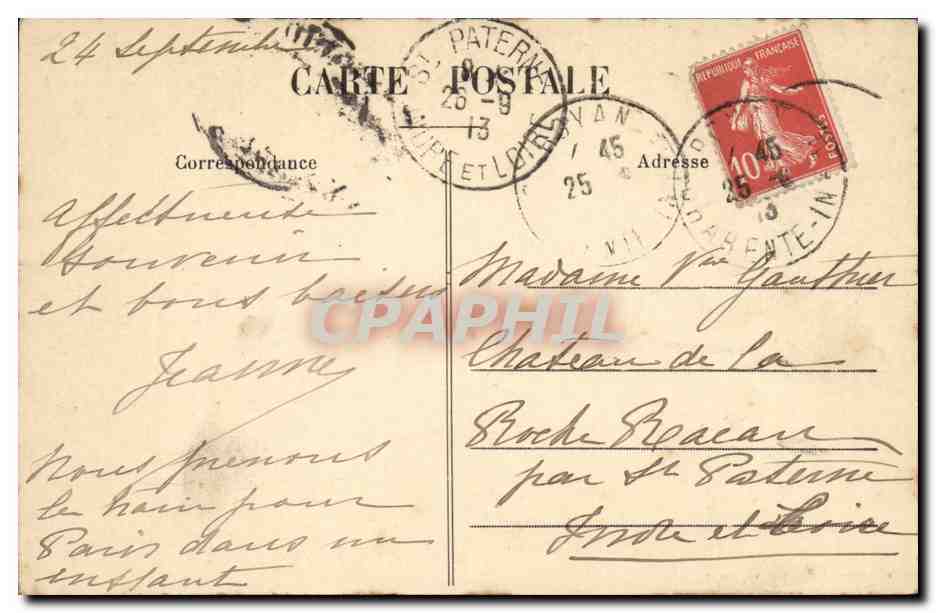 24 Septembre
CARTE POSTALE
Correspondance
Adresse
ST PATERNE
8
26 - 9
13
INDRE ET LOIRE
ROYAN
45
25
45
25
13
CHARENTE-IN
REPUBLIQUE FRANÇAISE
10
POSTES
Affectueux
souvenir
et bons baisers
Jeanne
Nous prenons
le train pour
Paris dans un
instant
CPAPHIL
Madame Vve Gauthier
Chateau de la
Roche Racan
par St Paterne
Indre et Loire